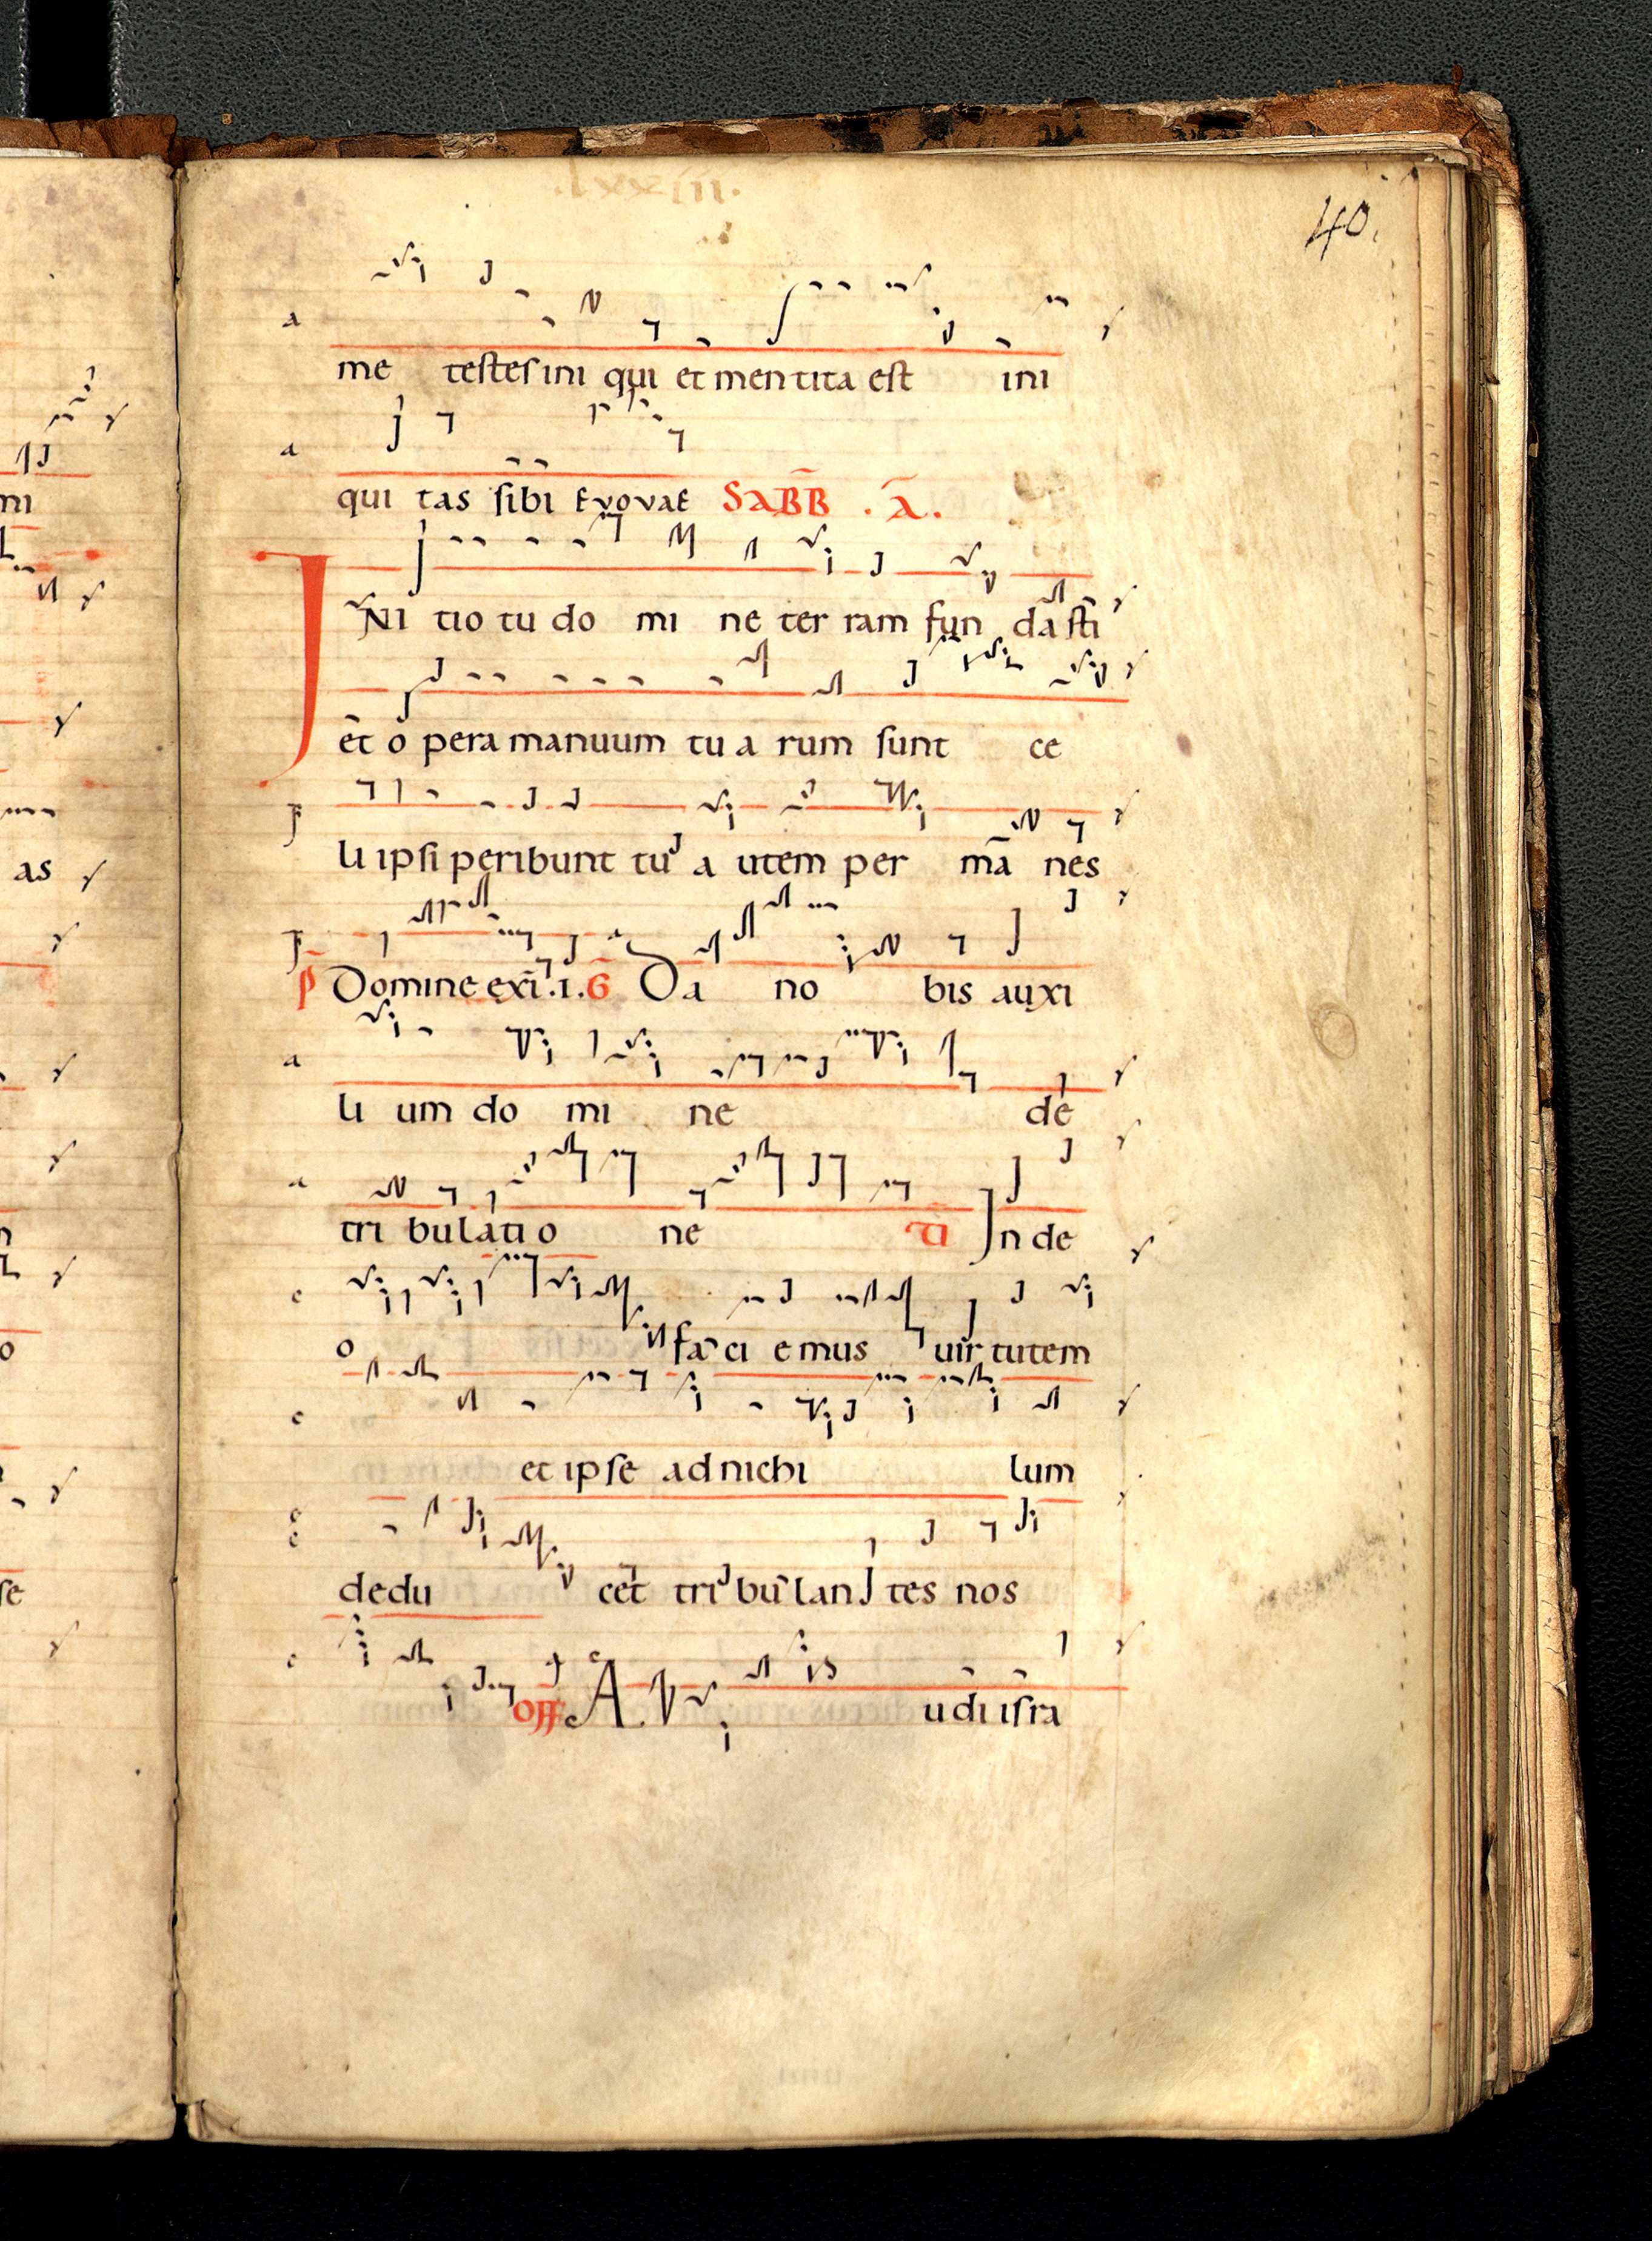 .lxxiii.
40.
a
me testes ini qui et mentita est ini
a
qui tas sibi Evovae SABB . A.
INI tio tu do mi ne ter ram fun da sti
et o pera manuum tu a rum sunt ce
F
li ipsi peribunt tu a utem per ma nes
F
P Domine exi .i. G Da no bis auxi
a
li um do mi ne de
a
tri bulati o ne TI In de
c
o fa ci emus uir tutem
c
et ipse ad nichi lum
e
c
dedu cet tri bu lan tes nos
c
OFF A udi isra
mi
as
n
o
se